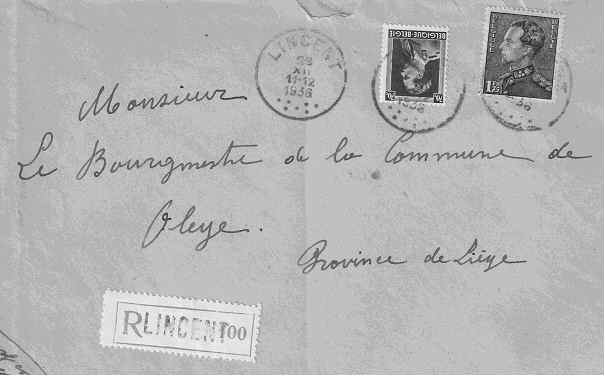 LINCENT
28
XII
11-12
1936
BELGIQUE-BELGIE
1936
BELGIE
36
Monsieur
Le Bourgmestre de la Commune de
Oleye.
Province de Liège
R LINCENT 00